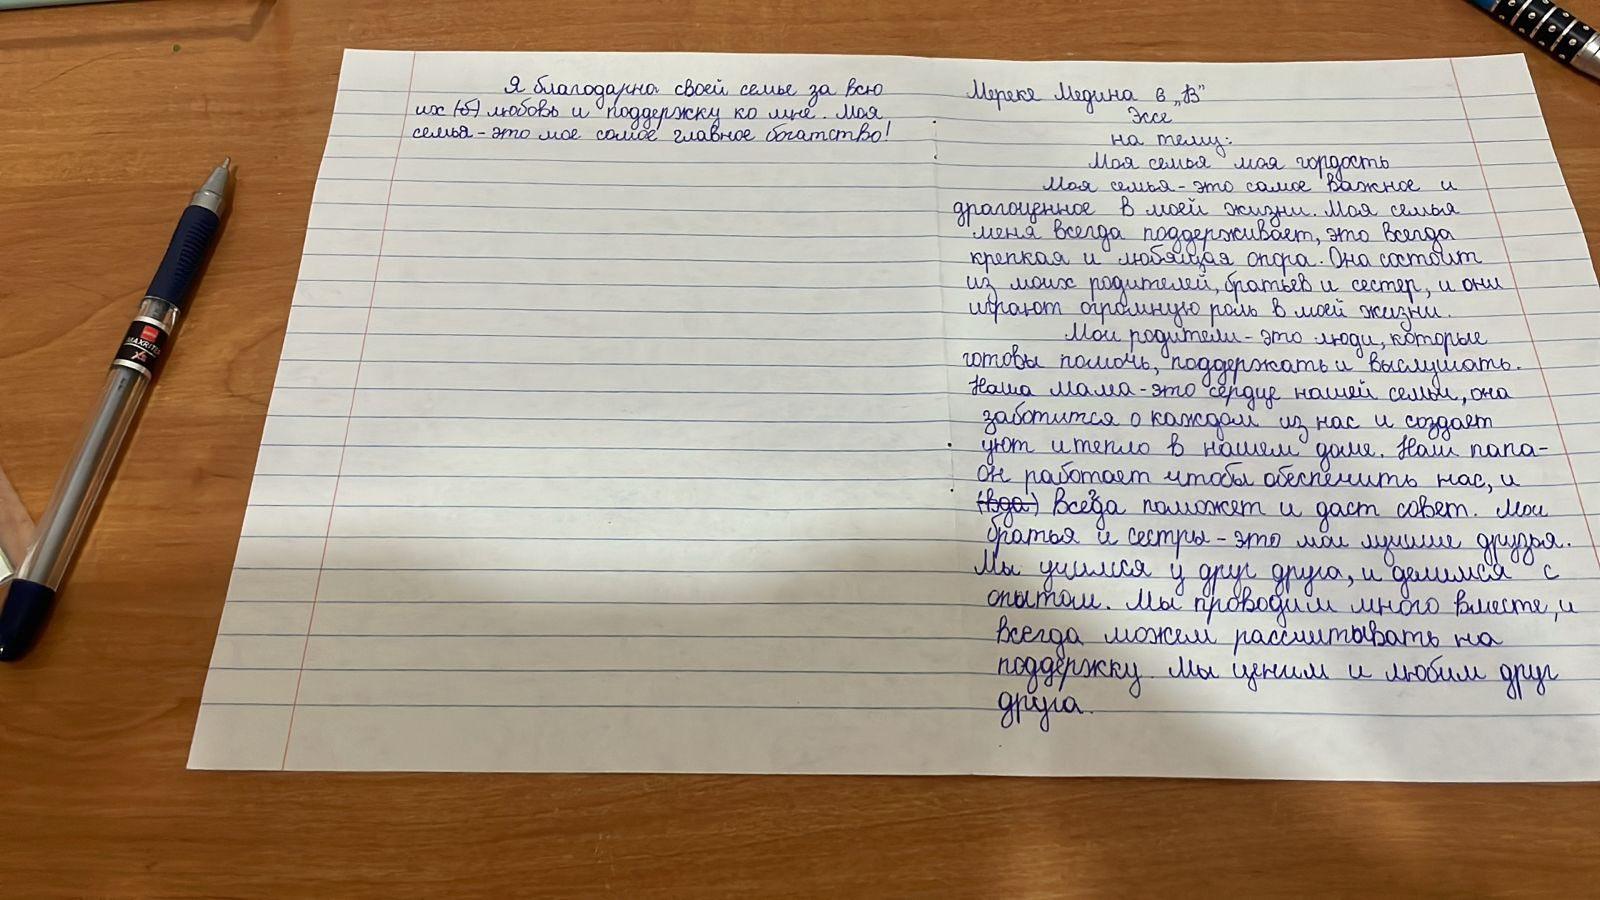 Мереке Медина 8 „В"
Эссе
на тему:
Моя семья моя гордость
Моя семья - это самое важное и
драгоценное в моей жизни. Моя семья
меня всегда поддерживает, это всегда
крепкая и любящая опора. Она состоит
из моих родителей, братьев и сестер, и они
играют огромную роль в моей жизни.
Мои родители - это люди, которые
готовы помочь, поддержать и выслушать.
Наша мама - это сердце нашей семьи, она
заботится о каждом из нас и создает
уют и тепло в нашем доме. Наш папа -
он работает чтобы обеспечить нас, и
(вда) Всегда поможет и даст совет. Мои
братья и сестры - это мои лучшие друзья.
Мы учимся у друг друга, и делимся с
опытом. Мы проводим много вместе, и
всегда можем рассчитывать на
поддержку. Мы ценим и любим друг
друга.
Я благодарна своей семье за всю
их (б) любовь и поддержку ко мне. Моя
семья - это мое самое главное богатство!
MAXRITER